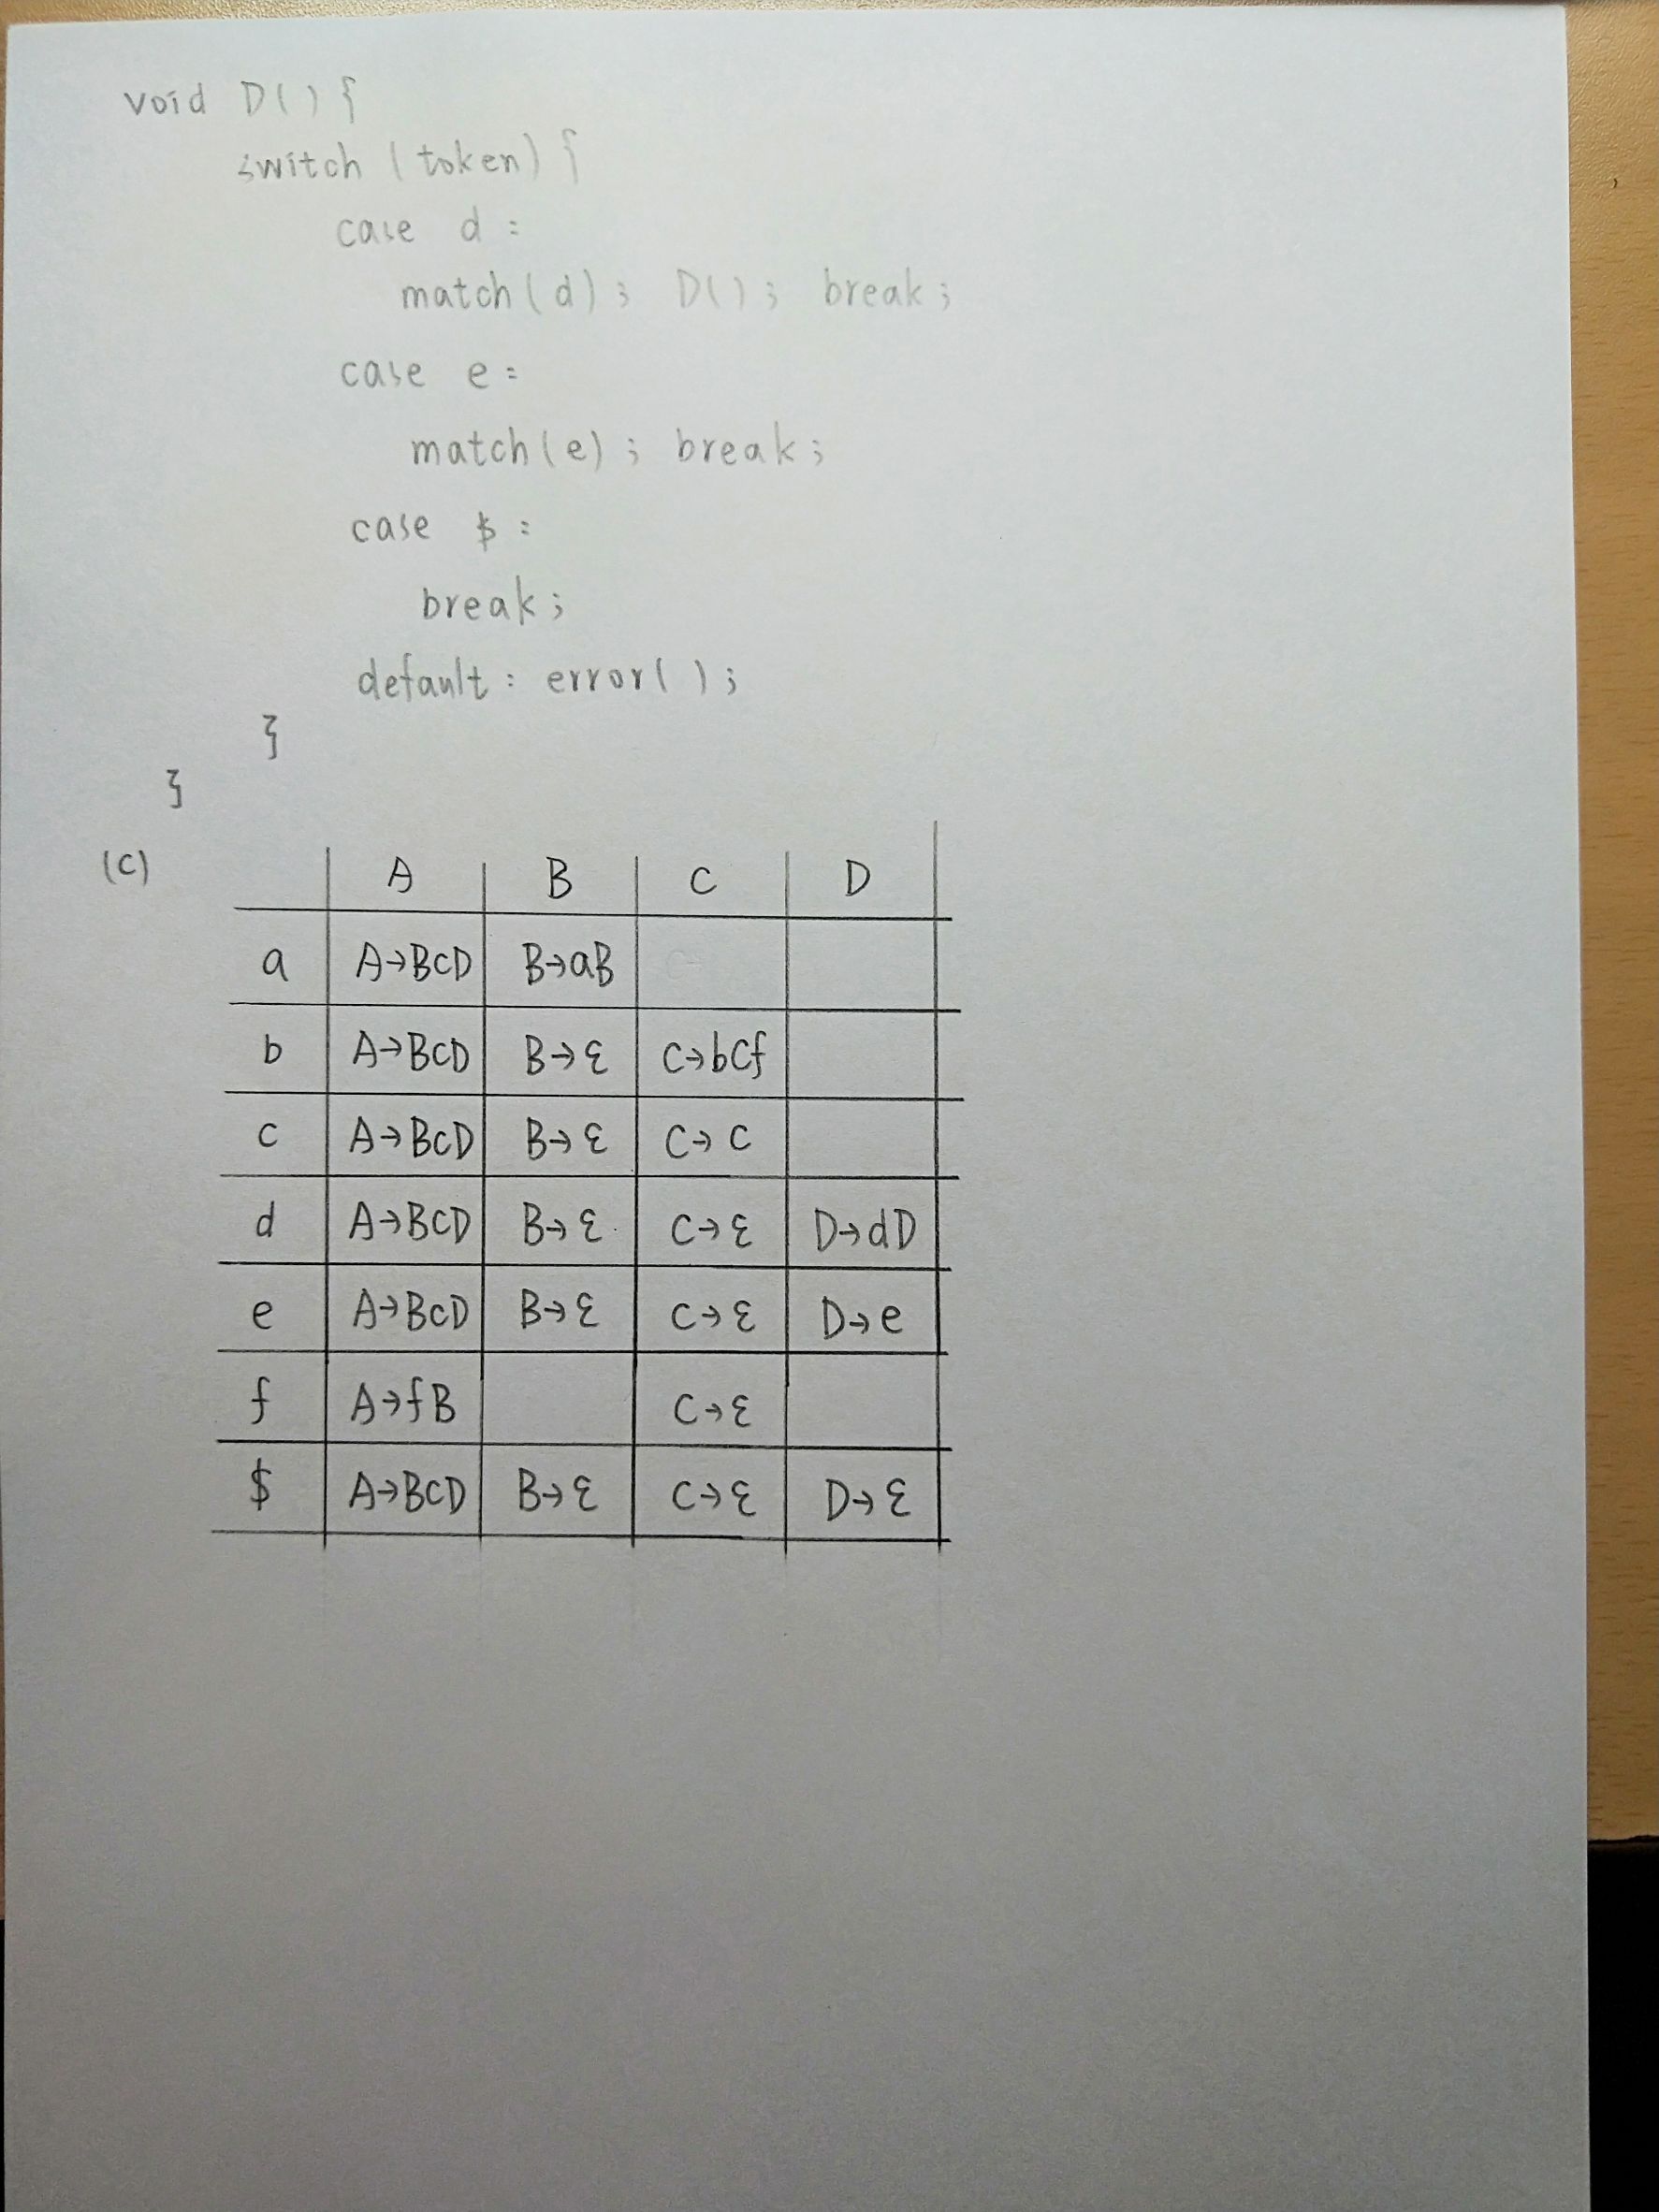 void D() {
switch (token) {
case d :
match(d) ; D() ; break ;
case e :
match(e) ; break ;
case $ :
break ;
default : error( ) ;
}
}
(C) A B C D
a A→BCD B→aB
b A→BCD B→ε C→bCf
c A→BCD B→ε C→c
d A→BCD B→ε C→ε D→dD
e A→BCD B→ε C→ε D→e
f A→fB C→ε
$ A→BCD B→ε C→ε D→ε